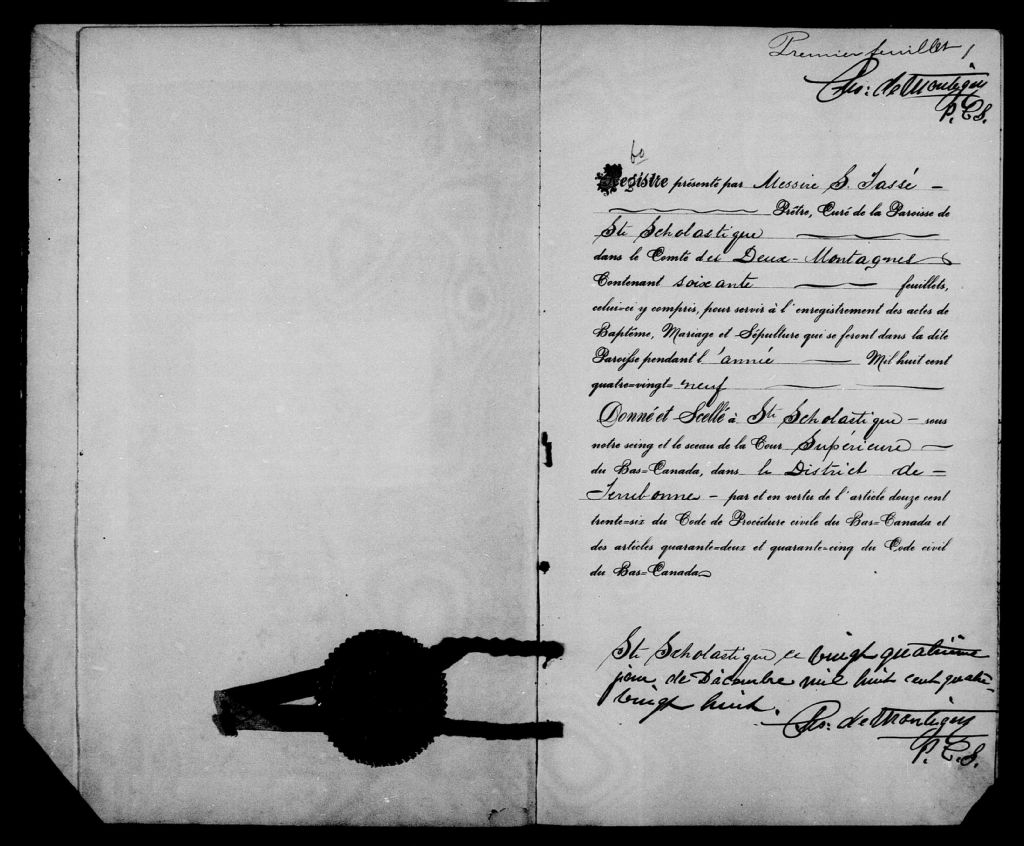 Premier feuillet 1
de Montigny
P.C.S.
60
Registre présenté par Messire S. Tassé
Prêtre, Curé de la Paroisse de
Ste Scholastique
dans le Comté des Deux-Montagnes
Contenant soixante feuillets,
celui-ci y compris, pour servir à l'enregistrement des actes de
Baptême, Mariage et Sépulture qui se feront dans la dite
Paroisse pendant l'année Mil huit cent
quatre-vingt-neuf
Donné et Scellé à Ste Scholastique sous
notre seing et le sceau de la Cour Supérieure
du Bas-Canada, dans le District de
Terrebonne par et en vertu de l'article douze cent
trente-six du Code de Procédure civile du Bas-Canada et
des articles quarante-deux et quarante-cinq du Code civil
du Bas-Canada
Ste Scholastique ce vingt quatrième
jour de Décembre mil huit cent quatre-
vingt huit.
de Montigny
P.C.S.